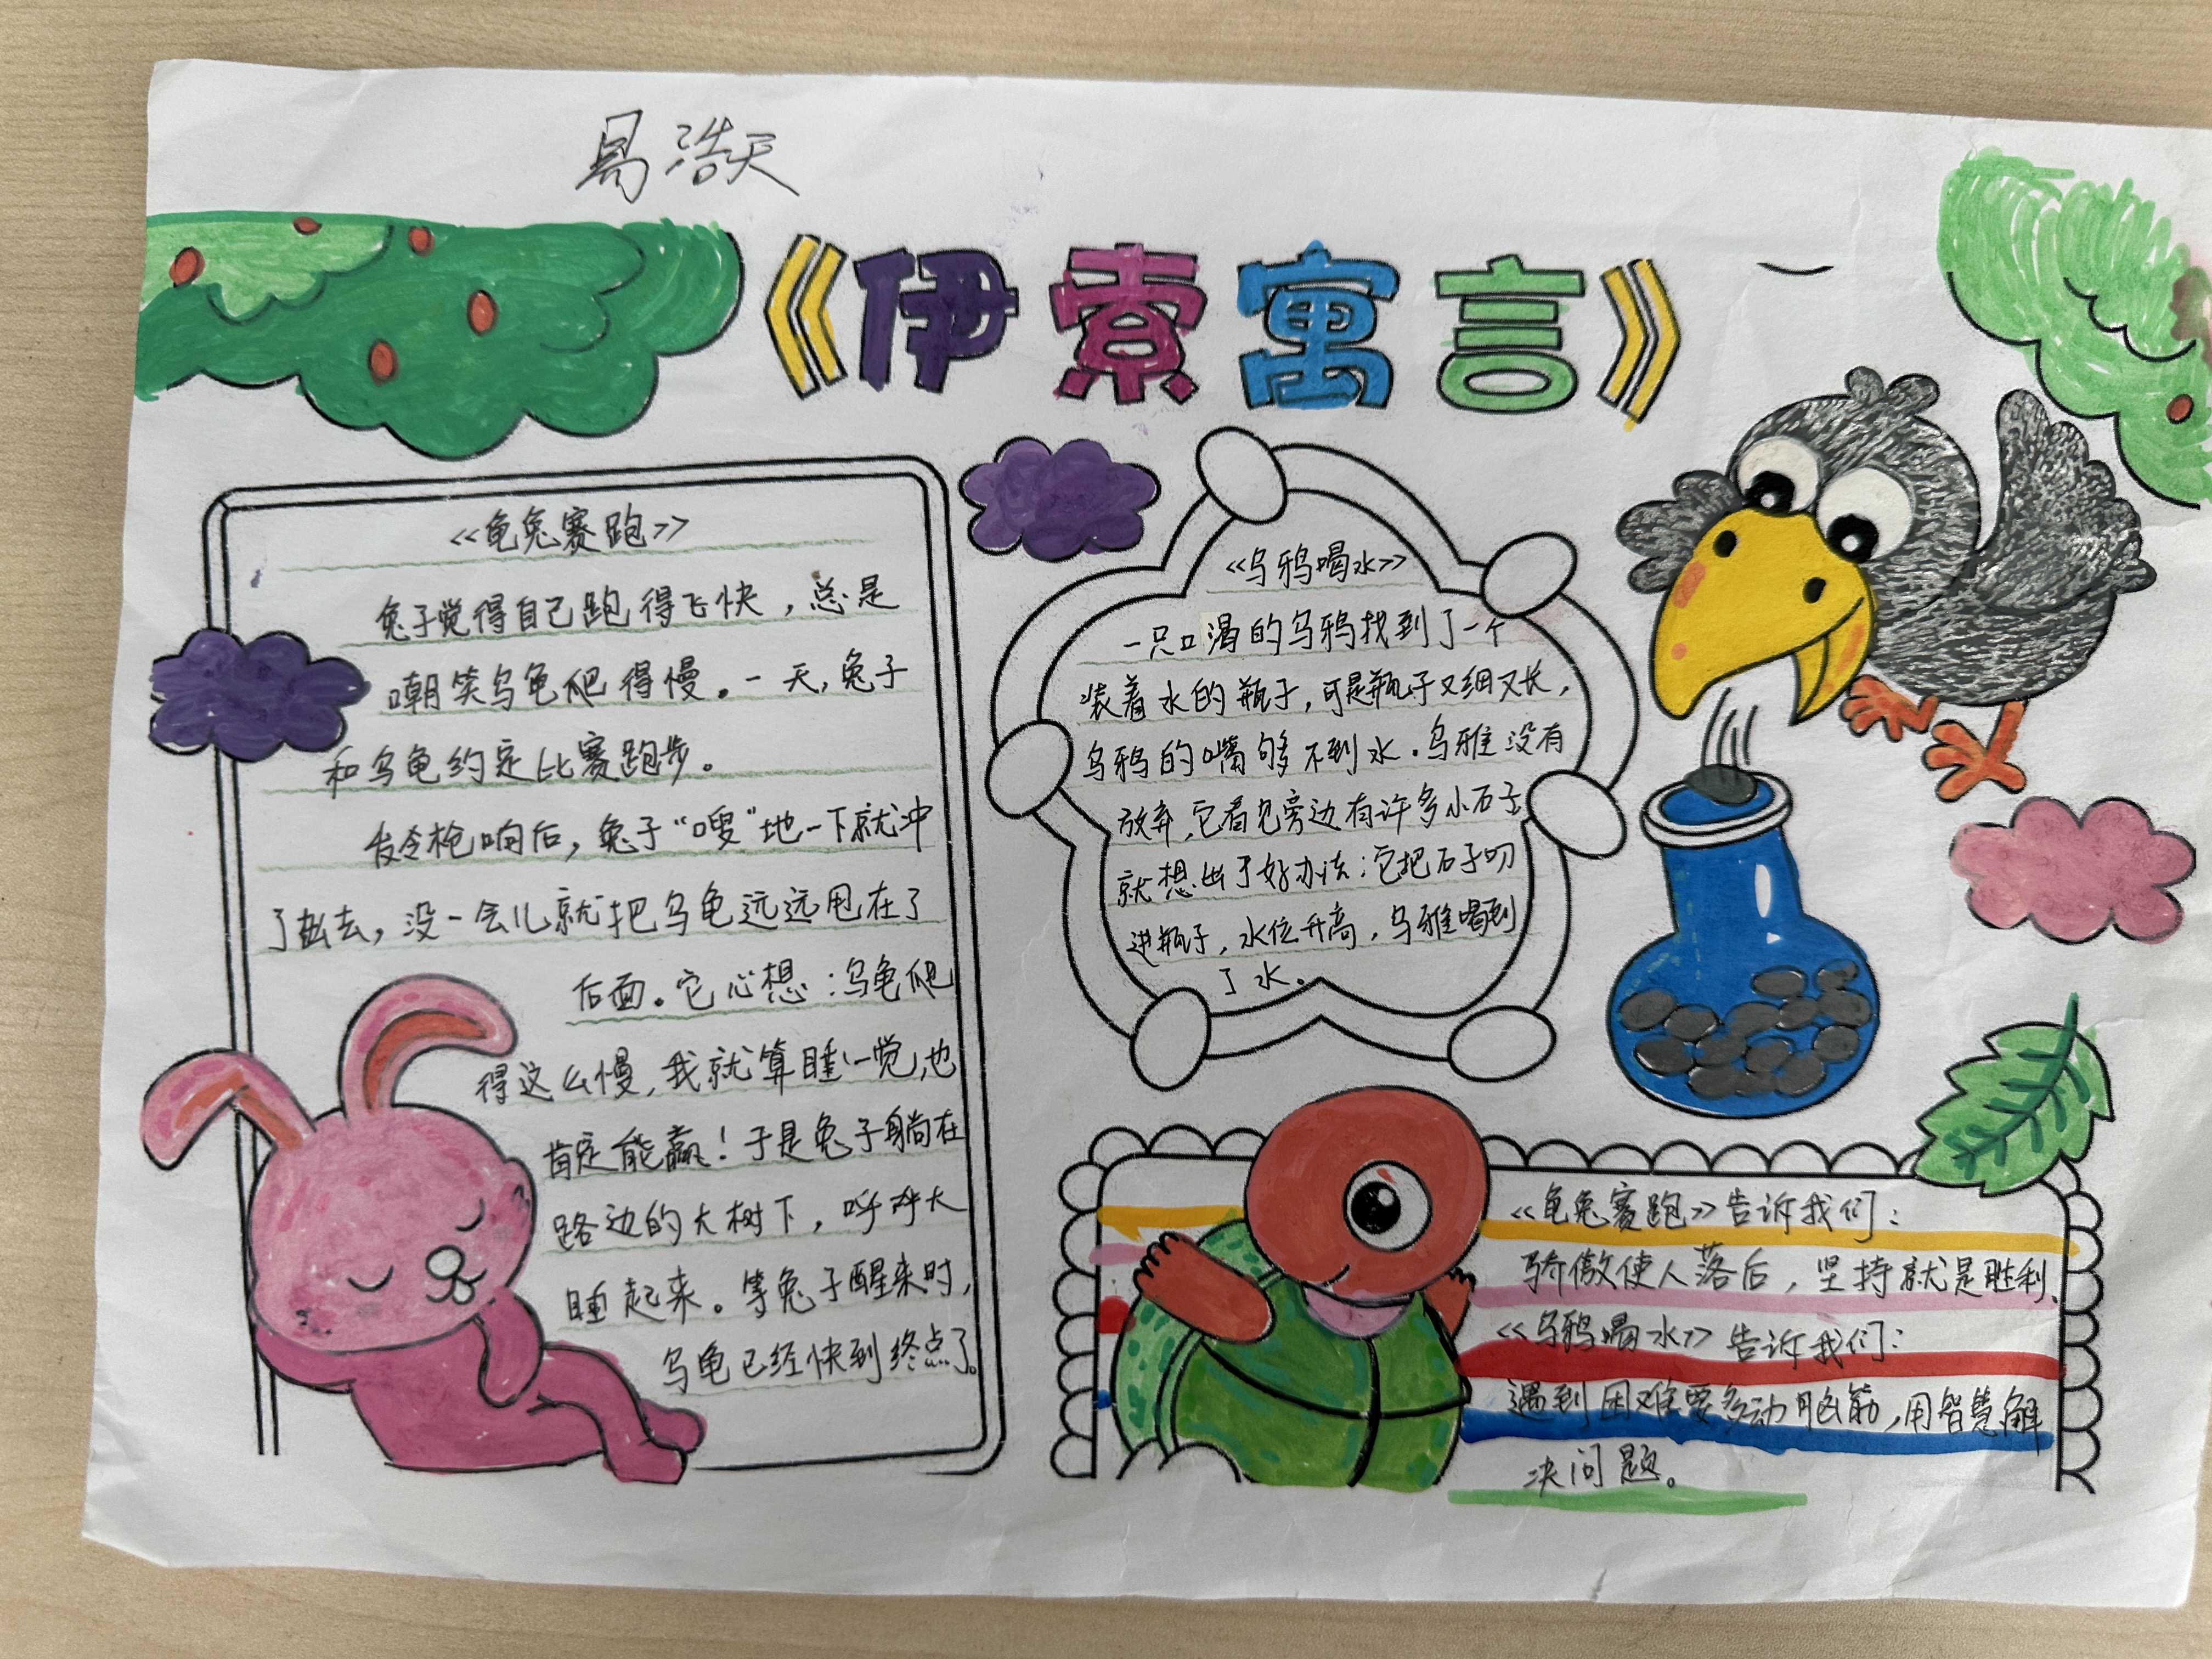 易浩天
《伊索寓言》
《龟兔赛跑》
兔子觉得自己跑得飞快，总是
嘲笑乌龟爬得慢。一天，兔子
和乌龟约定比赛跑步。
发令枪响后，兔子“嗖”地一下就冲
了出去，没一会儿就把乌龟远远甩在了
后面。它心想：乌龟爬
得这么慢，我就算睡一觉，也
肯定能赢！于是兔子躺在
路边的大树下，呼呼大
睡起来。等兔子醒来时，
乌龟已经快到终点了。
《乌鸦喝水》
一只口渴的乌鸦找到了一个
装着水的瓶子，可是瓶子又细又长，
乌鸦的嘴够不到水。乌雅没有
放弃，它看见旁边有许多小石子
就想出了好办法：它把石子叼
进瓶子，水位升高，乌雅喝到
了水。
《龟兔赛跑》告诉我们：
骄傲使人落后，坚持就是胜利、
《乌鸦喝水》告诉我们：
遇到困难要多动脑筋，用智慧解
决问题。